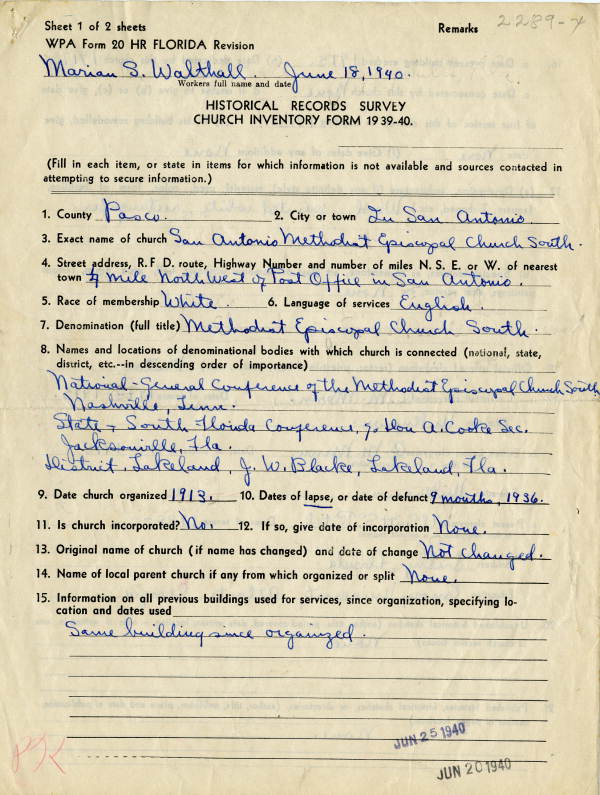 Sheet 1 of 2 sheets
Remarks 2289-4
WPA Form 20 HR FLORIDA Revision
Marian S. Walthall. June 18, 1940.
Workers full name and date
HISTORICAL RECORDS SURVEY
CHURCH INVENTORY FORM 1939-40.
(Fill in each item, or state in items for which information is not available and sources contacted in
attempting to secure information.)
1. County Pasco. 2. City or town In San Antonio.
3. Exact name of church San Antonio Methodist Episcopal Church South.
4. Street address, R.F D. route, Highway Number and number of miles N. S. E. or W. of nearest
town 1/4 mile North West of Post Office in San Antonio.
5. Race of membership White. 6. Language of services English.
7. Denomination (full title) Methodist Episcopal Church South.
8. Names and locations of denominational bodies with which church is connected (national, state,
district, etc.--in descending order of importance)
National-General Conference of the Methodist Episcopal Church South
Nashville, Tenn.
State - South Florida Conference, Hon A. Cooke Sec.
Jacksonville, Fla.
District, Lakeland, J. W. Blacke, Lakeland, Fla.
9. Date church organized 1913. 10. Dates of lapse, or date of defunct 9 months, 1936.
11. Is church incorporated? No. 12. If so, give date of incorporation None.
13. Original name of church (if name has changed) and date of change Not changed.
14. Name of local parent church if any from which organized or split None.
15. Information on all previous buildings used for services, since organization, specifying lo-
cation and dates used
Same building since organized.
JUN 25 1940
JUN 20 1940